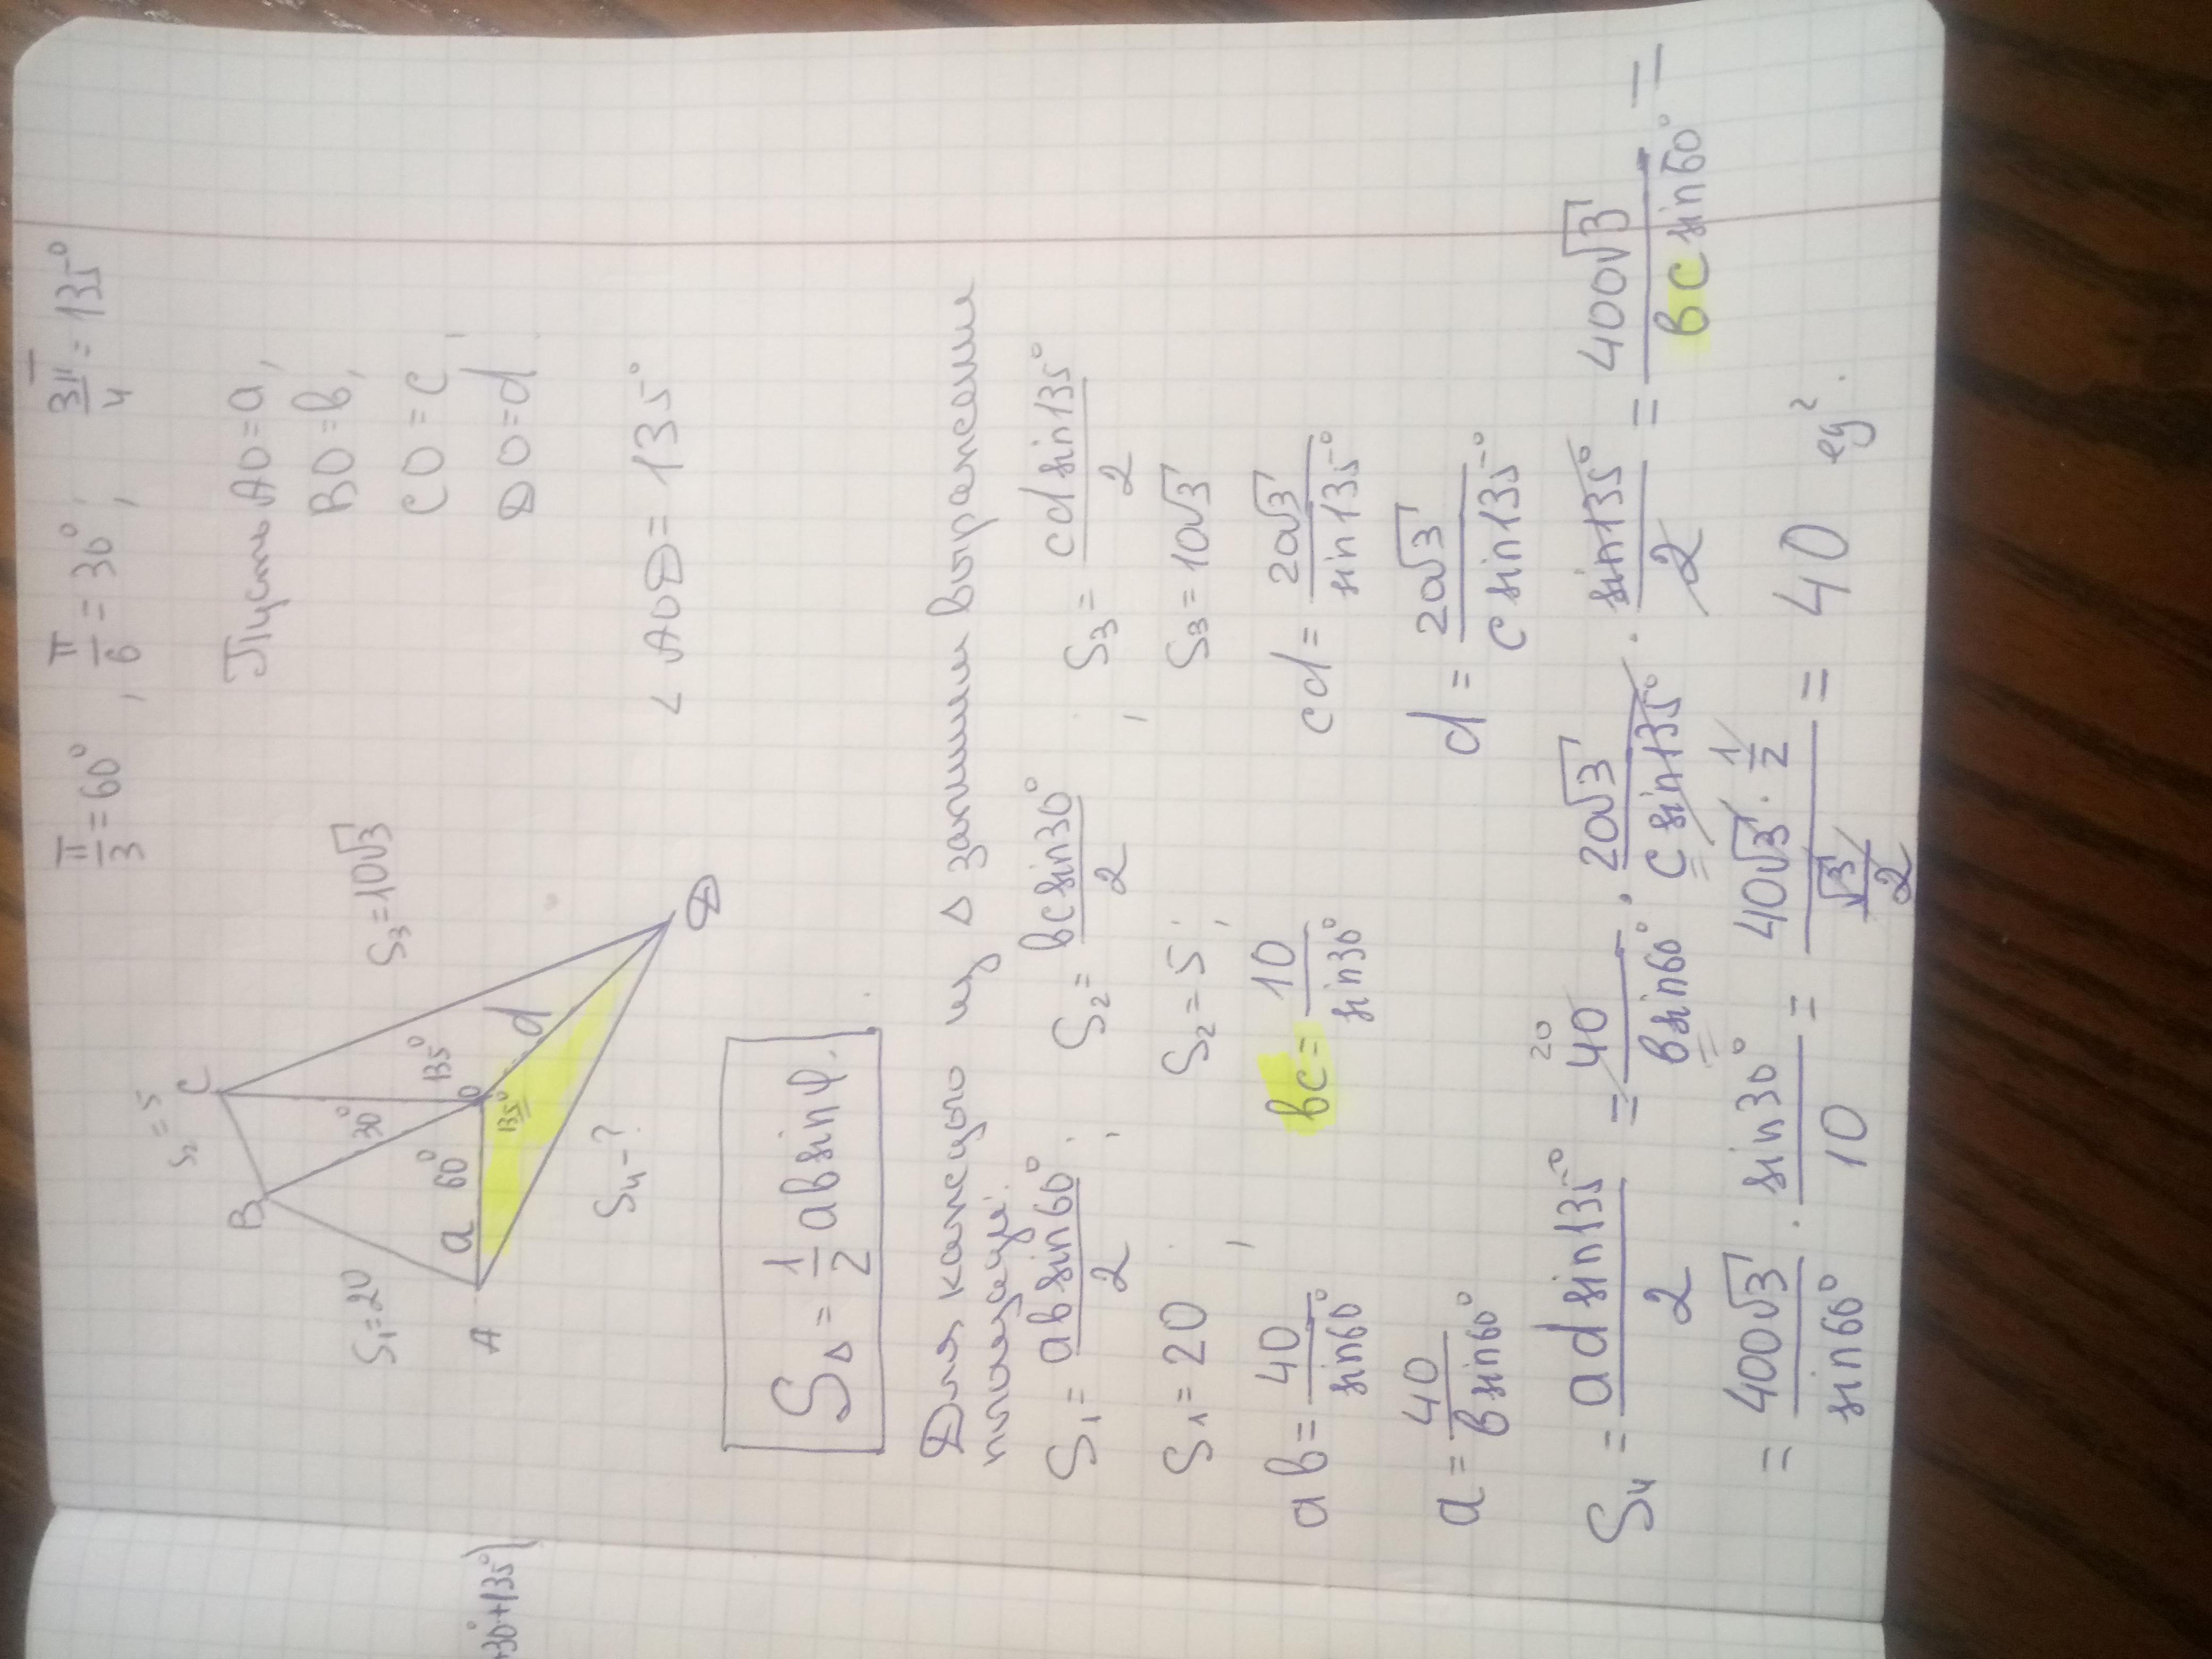 π/3 = 60°, π/6 = 30°, 3π/4 = 135°
S₂ = 5
C
B
S₁=20
S₃=10√3
30°
135°
60°
a
O
d
135°
A
S₄-?
D
Пусть AO=a,
BO=b,
CO=c,
DO=d.
∠AOD=135°
+30°+135°)
S△ = 1/2 ab sin φ.
Для каждого из △ запишем выражение
площади:
S₁ = ab sin60°/2; S₂ = bc sin30°/2, S₃ = cd sin135°/2
S₁ = 20, S₂ = 5; S₃ = 10√3
ab = 40/sin60° bc = 10/sin30° cd = 20√3/sin135°
a = 40/b sin60° d = 20√3/c sin135°
S₄ = ad sin135°/2 = 20 40/b sin60° · 20√3/c sin135° · sin135°/2 = 400√3/bc sin60° =
= 400√3/sin60° · sin30°/10 = 40√3 · 1/2/√3/2 = 40 ед².